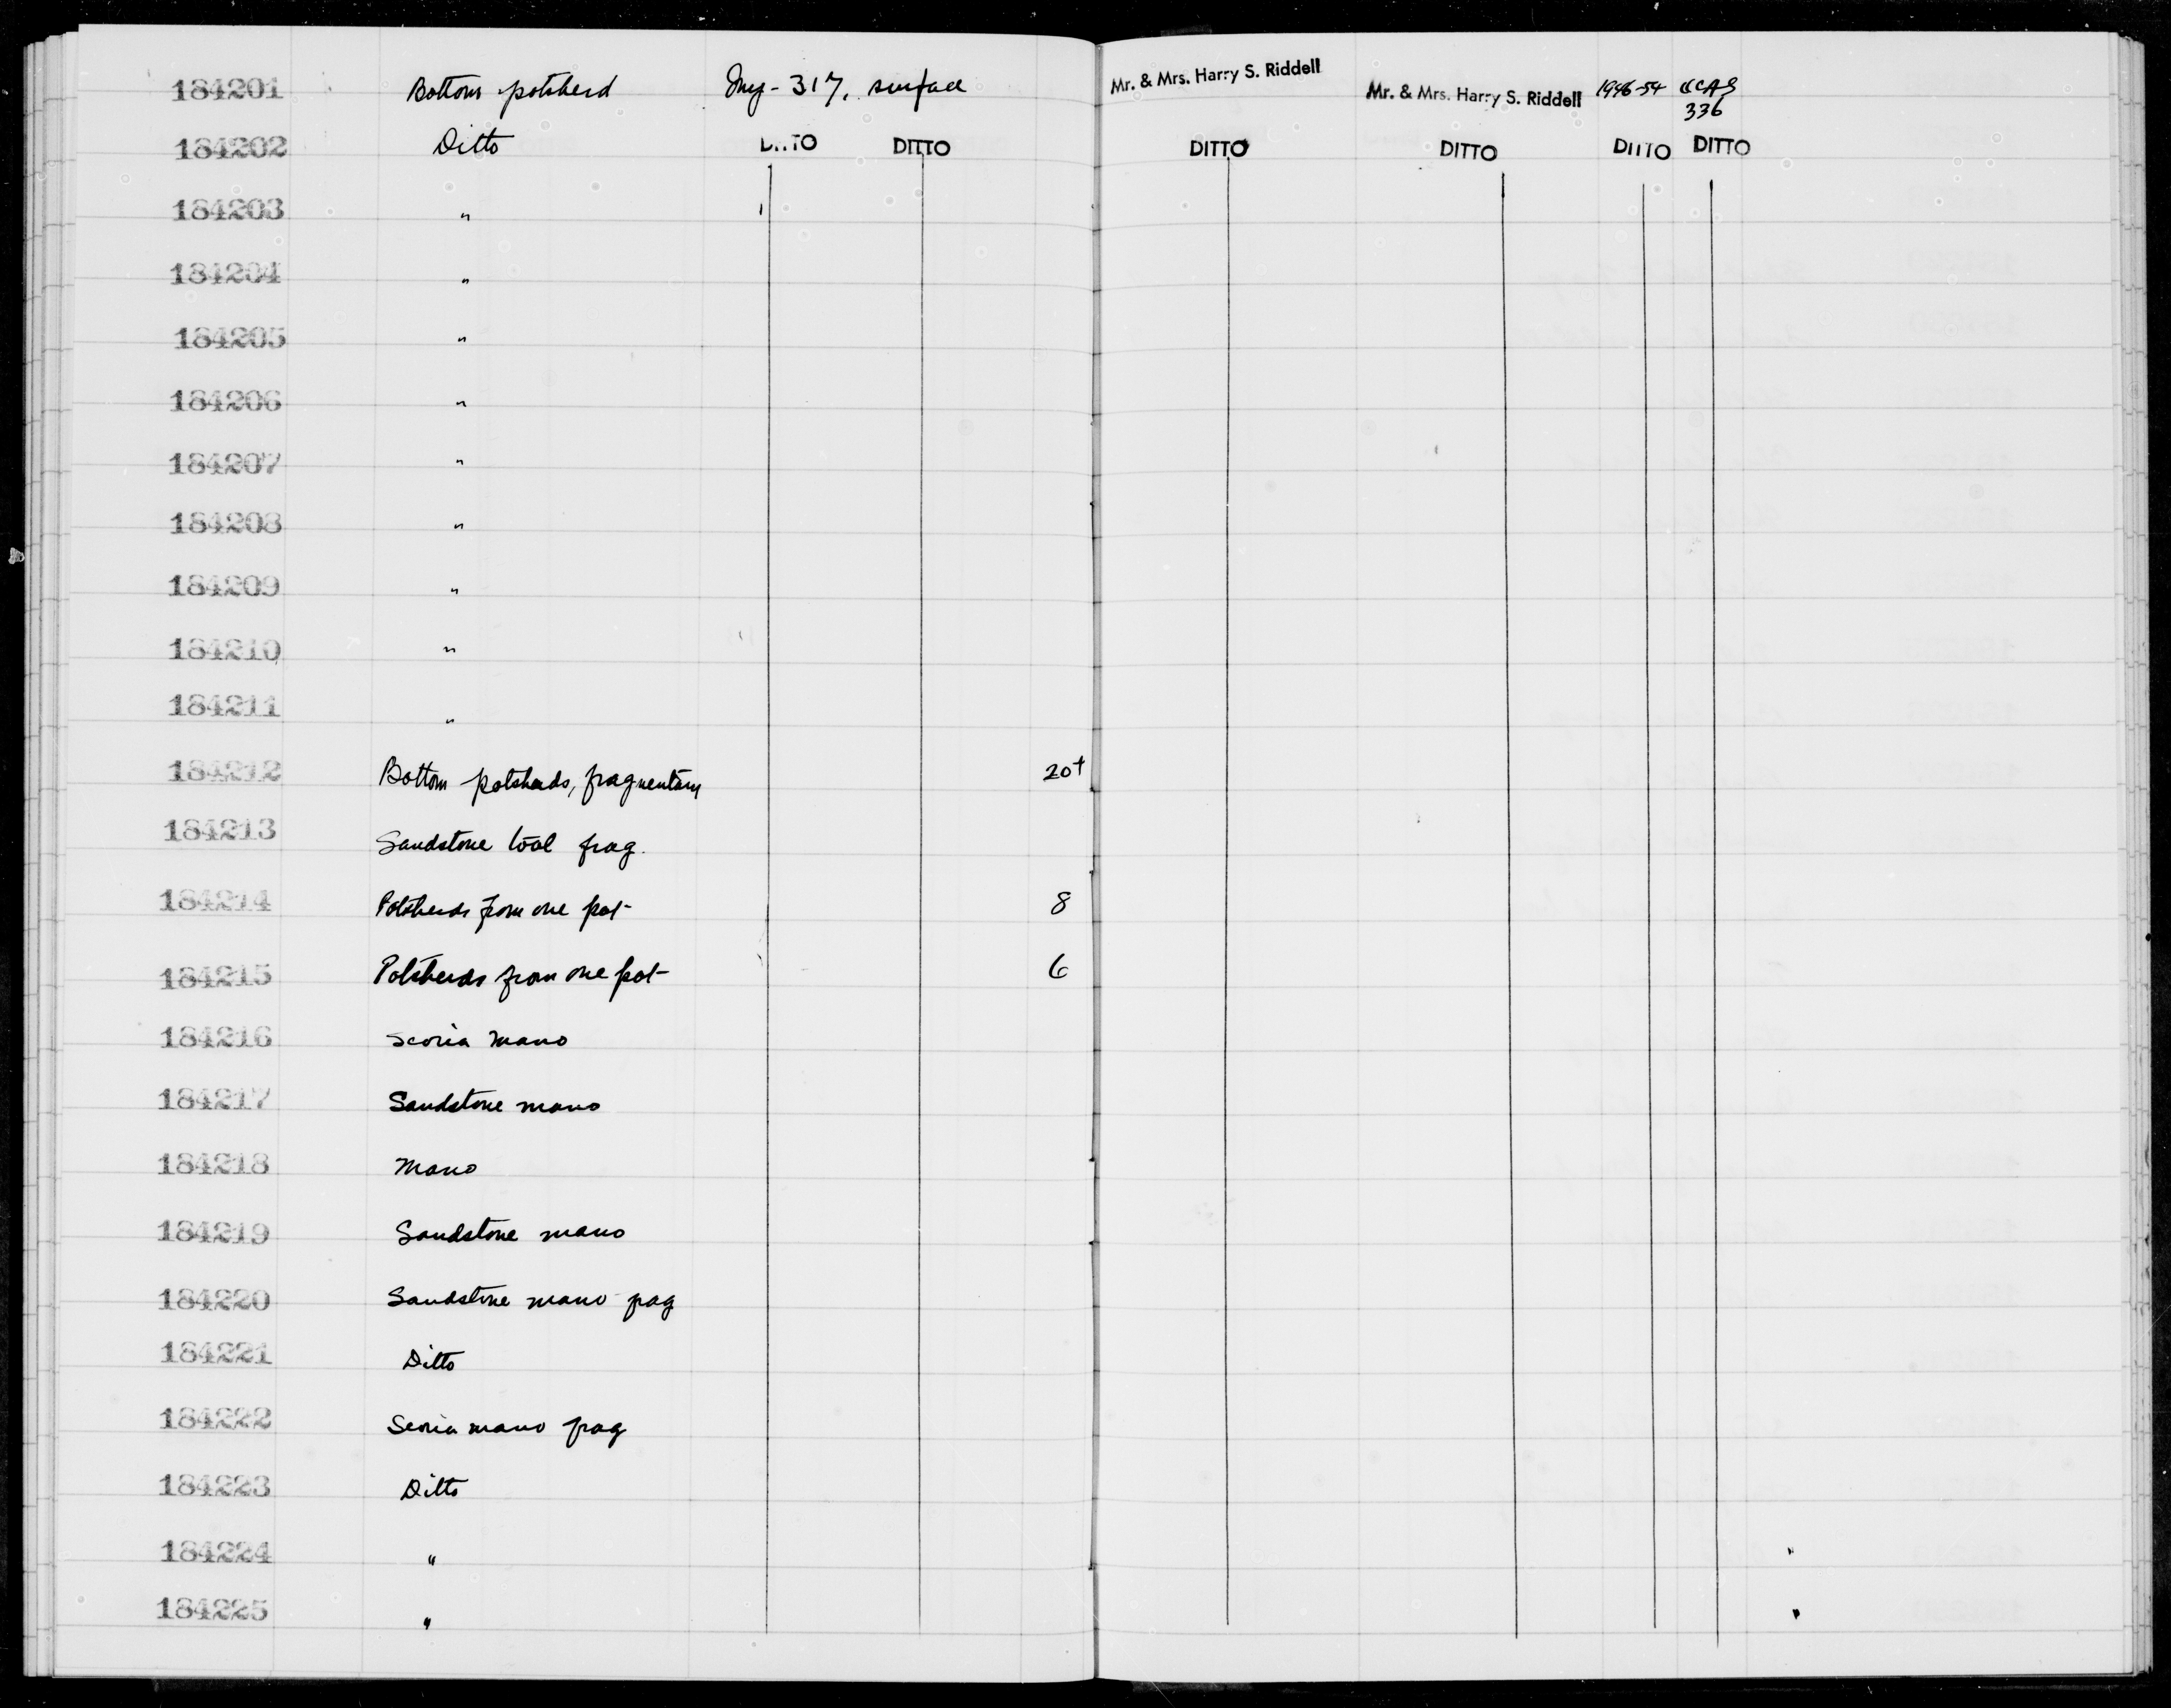 184201 Bottom potsherd Iny-317, surface Mr. & Mrs. Harry S. Riddell Mr. & Mrs. Harry S. Riddell 1946-54 UCAS
336
184202 Ditto DITTO DITTO DITTO DITTO DITTO DITTO
184203 "
184204 "
184205 "
184206 "
184207 "
184208 "
184209 "
184210 "
184211 "
184212 Bottom potsherds, fragmentary 20+
184213 Sandstone tool frag.
184214 Potsherds from one pot 8
184215 Potsherds from one pot 6
184216 Scoria mano
184217 Sandstone mano
184218 Mano
184219 Sandstone mano
184220 Sandstone mano frag
184221 Ditto
184222 Scoria mano frag
184223 Ditto
184224 "
184225 "